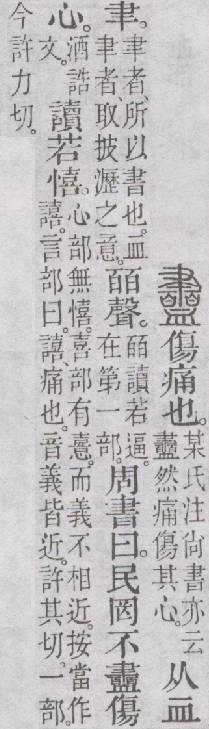 衋傷痛也。某氏注尙書亦云衋然痛傷其心。从血
聿。聿者、所以書也。血聿者、取披瀝之意。皕聲。皕讀若逼。在第一部。周書曰。民罔不衋傷
心。酒誥文。讀若憘。心部無憘。喜部有憙。而義不相近。按當作譆。言部曰。譆、痛也。音義皆近。許其切。一部。
今許力切。